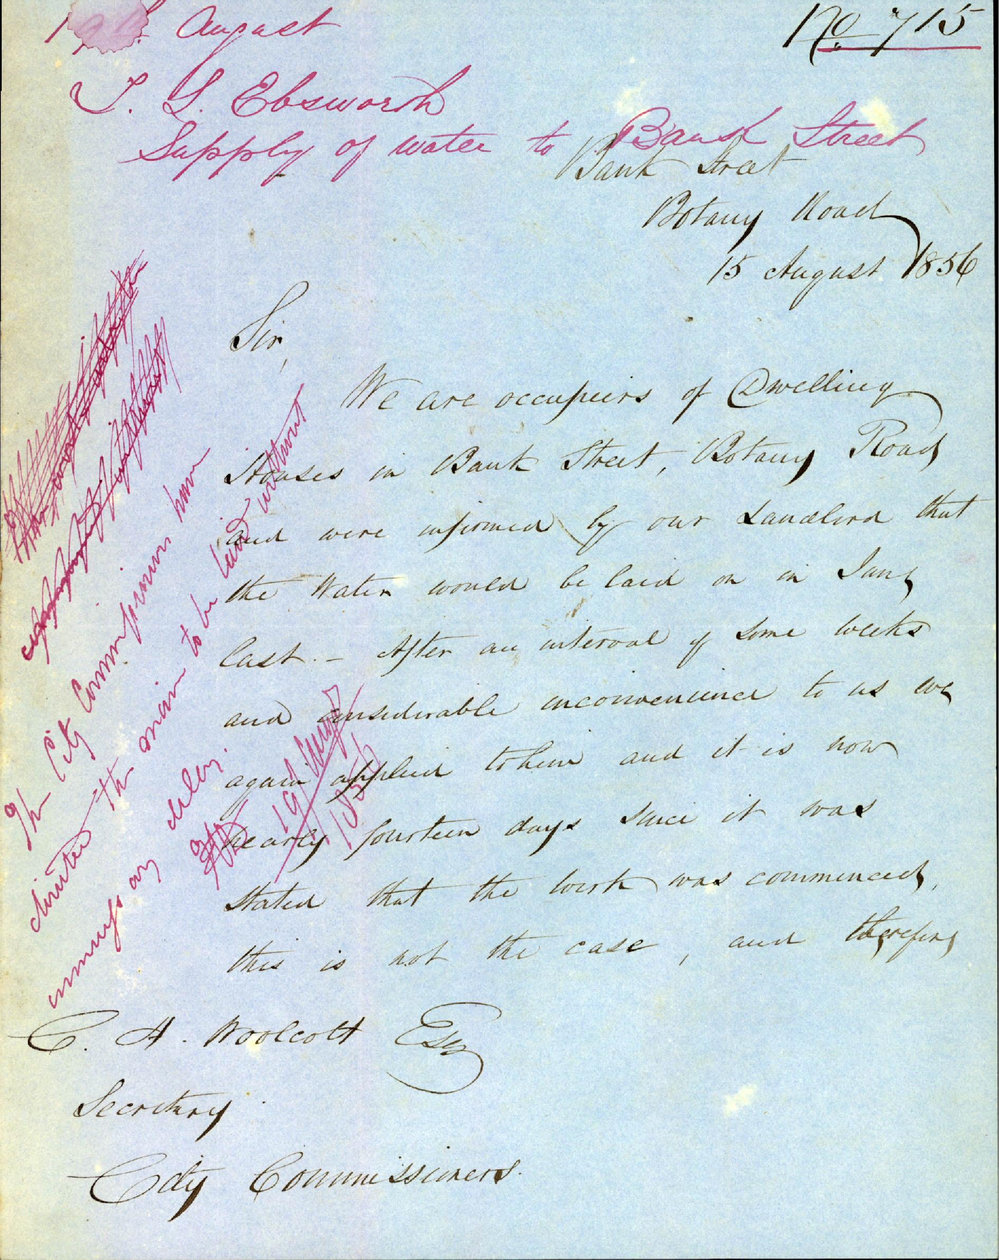 No 715
August
T. S. Ebsworth
Supply of water to Bank Street
Bank Street
Botany Road
15 August 1856
Sir,
We are occupiers of Dwelling
Houses in Bank Street, Botany Road
and were informed by our Landlord that
the Water would be laid on in Jany
last. – After an interval of some weeks
and considerable inconvenience to us we
again applied to him and it is now
nearly fourteen days since it was
stated that the work was commenced,
this is not the case, and therefore
C. H. Woolcott Esq
Secretary
City Commissioners.
The City Commissioners have
directed the main to be laid without
unnecessary delay
19 Augt
1856